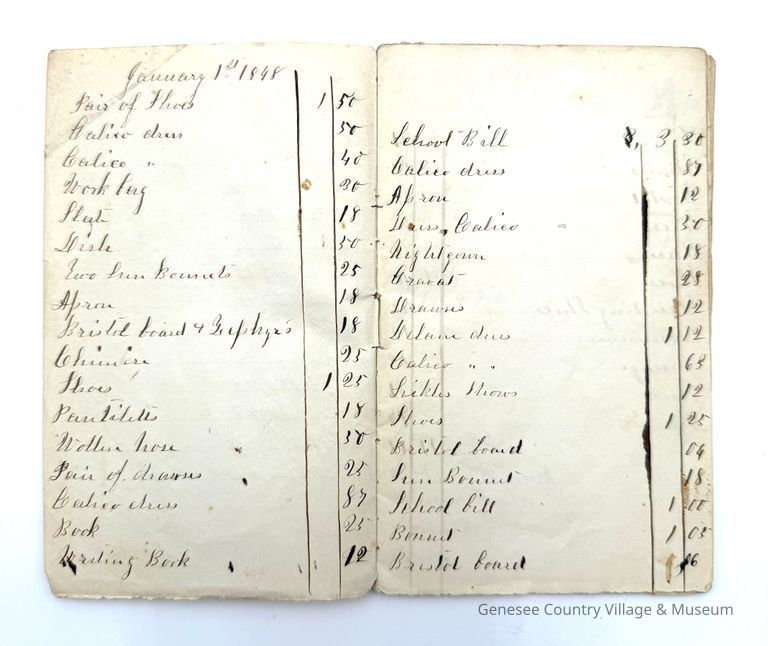 January 1st 1848
Pair of Shoes 1 50
Calico dress 50
Calico " 40
Work bag 30
Slate 18
Dish 50
Two Sun Bonnets 25
Apron 18
Bristol board & Zephyrs 18
Chimise 25
Shoes 1 25
Pantiletts 18
Wollen hose 30
Pair of drawses 25
Calico dress 87
Book 25
Writing Book 12
School Bill 3 30
Calico dress 87
Apron 12
Dress, Calico 30
Nightgown 18
Cravat 28
Drawes 12
Delane dress 1 12
Calico " " 63
12
Shoes 1 25
Bristol board 04
Sun Bonnet 18
School bill 1 00
Bonnet 1 05
Bristol board
Genesee Country Village & Museum